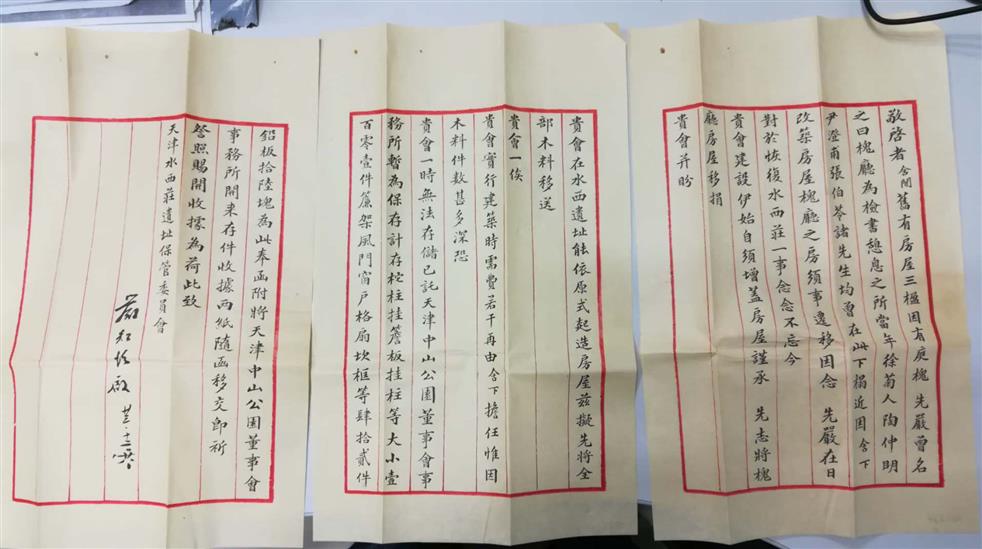 敬啓者舍間舊有房屋三楹因有庭槐　先嚴曾名
之曰槐廳為檢書憩息之所當年徐菊人陶仲明
尹澄甫張伯苓諸先生均曾在此下榻近因舍下
改築房屋槐廳之房須事遷移因念　先嚴在日
對於恢復水西莊一事念念不忘今
貴會建設伊始自須增蓋房屋謹承　先志將槐
廳房屋移捐
貴會并盼
貴會在水西遺址能依原式起造房屋茲擬先將全
部木料移送
貴會一俟
貴會實行建築時需費若干再由舍下擔任惟因
木料件數甚多深恐
貴會一時無法存儲已託天津中山公園董事會事
務所暫為保存計存柁柱挂簷板挂柱等大小壹
百零壹件簾架風門窗戶格扇坎框等肆拾貳件
鉛板拾陸塊為此奉函附將天津中山公園董事會
事務所開來存件收據兩紙隨函移交即祈
詧照賜開收據為荷此致
天津水西莊遺址保管委員會
嚴智怡啟